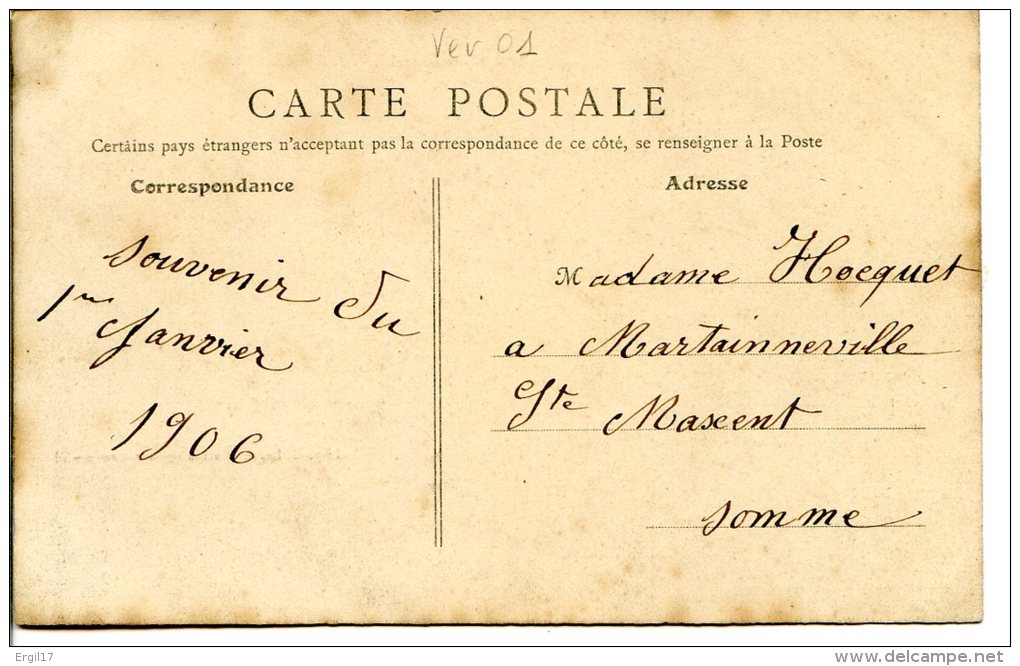 Ver 01
CARTE POSTALE
Certains pays étrangers n'acceptant pas la correspondance de ce côté, se renseigner à la Poste
Correspondance
souvenir du
1er Janvier
1906
Adresse
Madame Hocquet
a Martainneville
Ste Maxent
somme
Ergil17
www.delcampe.net